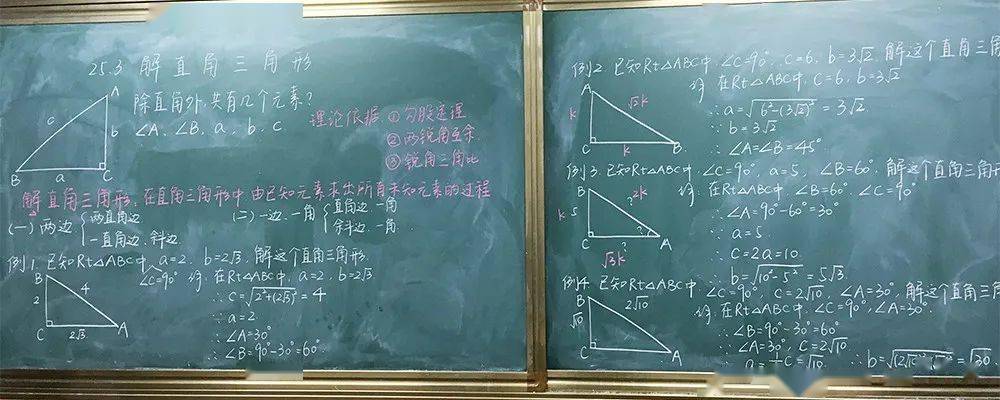 25.3 解直角三角形
除直角外,共有几个元素?
∠A、∠B、a、b、c
理论依据 ①勾股定理
②两锐角互余
③锐角三角比
A
c
b
B
a
C
解直角三角形:在直角三角形中由已知元素求出所有未知元素的过程
(一)两边 {两直角边
一直角边、斜边
(二)一边、一角 {直角边、一角
斜边、一角
例1. 已知Rt△ABC中, a=2, b=2√3, 解这个直角三角形.
∠C=90°
解: 在Rt△ABC中, a=2, b=2√3
∴c=√(2²+(2√3)²)=4
∵a=2
∴∠A=30°
∴∠B=90°-30°=60°
B
2
4
C
2√3
A
例2. 已知Rt△ABC中, ∠C=90°, c=6, b=3√2, 解这个直角三角
解: 在Rt△ABC中, c=6, b=3√2
∴a=√(6²-(3√2)²)=3√2
∵b=3√2
∴∠A=∠B=45°
A
√2k
k
C
k
B
例3. 已知Rt△ABC中, ∠C=90°, a=5, ∠B=60°, 解这个直角三角
解: 在Rt△ABC中, ∠B=60°, ∠C=90°
∴∠A=90°-60°=30°
∵a=5
∴c=2a=10
∴b=√(10²-5²)=5√3
B
? 2k
k 5
?
C
?
A
√3k
例4. 已知Rt△ABC中, ∠C=90°, c=2√10, ∠A=30°, 解这个直角三角
解: 在Rt△ABC中, ∠C=90°, ∠A=30°
∴∠B=90°-30°=60°
∵∠A=30°, c=2√10
∴b=√30
B
2√10
√10
C
A